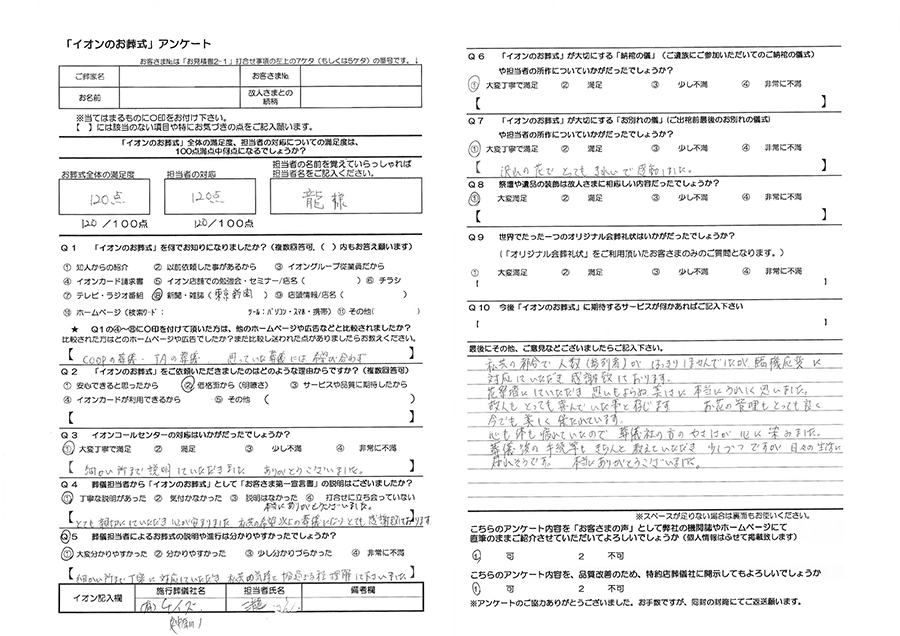 「イオンのお葬式」アンケート
お客さま№は「お見積書2-1」打合せ事項の左上の7ケタ（もしくは5ケタ）の番号です。↓
ご葬家名
お客さま№
お名前
故人さまとの続柄
※当てはまるものに○印をお付け下さい。
【　】には該当のない項目や特にお気づきの点をご記入願います。
「イオンのお葬式」全体の満足度、担当者の対応についての満足度は、
100点満点中何点になるでしょうか？
お葬式全体の満足度
担当者の対応
担当者の名前を覚えていらっしゃれば
担当者名をご記入ください。
120点
120点
龍 様
120/100点
120/100点
Q1 「イオンのお葬式」を何でお知りになりましたか？（複数回答可、（ ）内もお答え願います）
① 知人からの紹介 ② 以前依頼した事があるから ③ イオングループ従業員だから
④ イオンカード請求書 ⑤ イオン店舗での勉強会・セミナー/店名（ ） ⑥ チラシ
⑦ テレビ・ラジオ番組 ⑧ 新聞・雑誌（東京新聞） ⑨ 店頭情報/店名（ ）
⑩ ホームページ（検索ワード： ツール：パソコン・スマホ・携帯） ⑪ その他（ ）
★ Q1の④～⑧に○印を付けて頂いた方は、他のホームページや広告などと比較されましたか？
比較された方はどのホームページや広告でしたか？また比較し迷われた点がありましたらお教えください。
【 COOPの葬儀・JAの葬儀 思っていた葬儀には 】
Q2 「イオンのお葬式」をご依頼いただきましたのはどのような理由からですか？（複数回答可）
① 安心できると思ったから ② 価格面から（明瞭さ） ③ サービスや品質に期待したから
④ イオンカードが利用できるから ⑤ その他（
【 】
Q3 イオンコールセンターの対応はいかがだったでしょうか？
① 大変丁寧で満足 ② 満足 ③ 少し不満 ④ 非常に不満
【 細かい所まで説明していただきました ありがとうございました。 】
Q4 葬儀担当者から「イオンのお葬式」として「お客さま第一宣言書」の説明はございましたか？
① 丁寧な説明があった ② 気付かなかった ③ 説明はなかった ④ 打合せに立ち会っていない
本当にありがとうございました。
【とても親切にしていただき心が安まりました 私共の希望以上の葬儀になりとても感謝致しております】
Q5 葬儀担当者によるお葬式の説明や進行は分かりやすかったでしょうか？
① 大変分かりやすかった ② 分かりやすかった ③ 少し分かりづらかった ④ 非常に不満
【細かい所まで丁寧に対応していただき 私共の気持を 理解して下さいました】
イオン記入欄
施行葬儀社名
担当者氏名
備考欄
(有)ケイズ
龍 さん
Q6 「イオンのお葬式」が大切にする「納棺の儀」（ご遺族にご参加いただいてのご納棺の儀式）
や担当者の所作についていかがだったでしょうか？
① 大変丁寧で満足 ② 満足 ③ 少し不満 ④ 非常に不満
【 】
Q7 「イオンのお葬式」が大切にする「お別れの儀」（ご出棺前最後のお別れの儀式）
や担当者の所作についていかがだったでしょうか？
① 大変丁寧で満足 ② 満足 ③ 少し不満 ④ 非常に不満
【 沢山の花で とても きれいで感動しました。 】
Q8 祭壇や遺品の装飾は故人さまに相応しい内容だったでしょうか？
① 大変満足 ② 満足 ③ 少し不満 ④ 非常に不満
【 】
Q9 世界でたった一つのオリジナル会葬礼状はいかがだったでしょうか？
（「オリジナル会葬礼状」をご利用頂いたお客さまのみのご質問となります。）
① 大変満足 ② 満足 ③ 少し不満 ④ 非常に不満
【 】
Q10 今後「イオンのお葬式」に期待するサービスが何かあればご記入下さい
【 】
最後にその他、ご意見などございましたらご記入下さい。
私共の都合で 人数（参列者）が はっきりしませんでしたが 臨機応変に
対応していただき 感謝致しております。
花祭壇にしていただき 思いもよらぬ 美しさに 本当にうれしく思いました。
故人も とっても 喜んでいた事と存じます お花の管理もとっても良く
今でも 美しく 保たれています。
心も体も疲れていたので 葬儀社の方の やさしさが 心に 染みました。
葬儀後の手続等も きちんと 教えていただき 少しづつですが 日々の生活に
戻れそうです。 本当にありがとうございました。
※スペースが足りない場合は裏面もお使いください。
こちらのアンケート内容を「お客さまの声」として弊社の機関誌やホームページにて
直筆のままご紹介させていただいてよろしいでしょうか（個人情報はふせて掲載致します）
1 可 2 不可
こちらのアンケート内容を、品質改善のため、特約店葬儀社に開示してもよろしいでしょうか
1 可 2 不可
※アンケートのご協力ありがとうございました。お手数ですが、同封の封筒にてご返送願います。